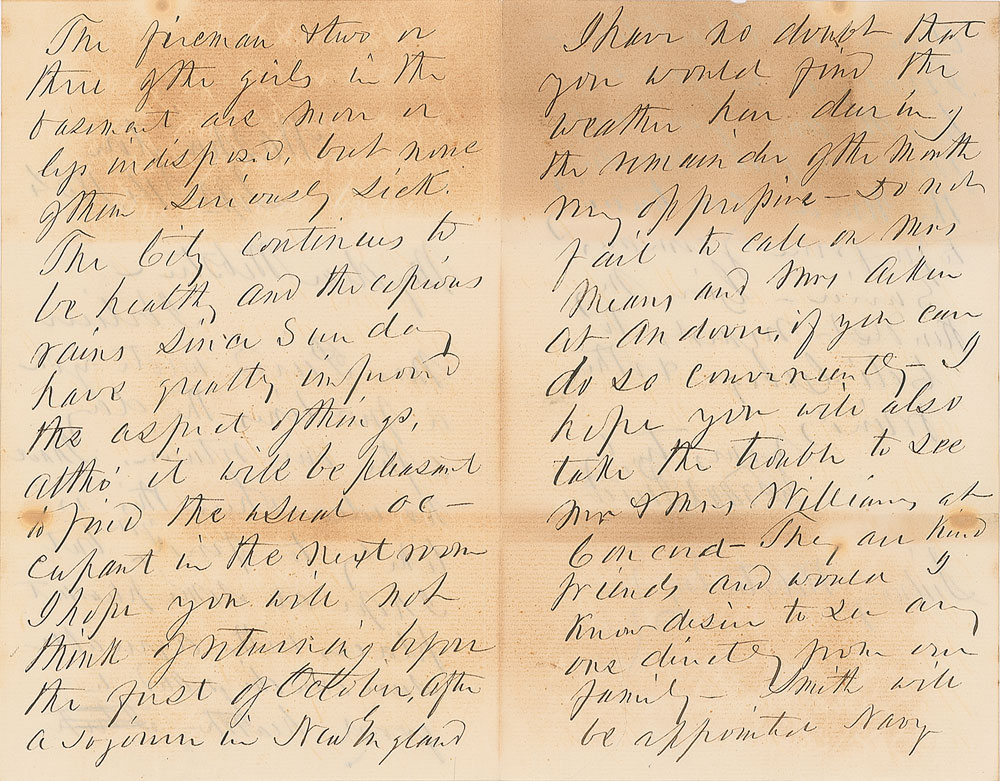 The fireman & two or
three of the girls in the
basement are more or
less indisposed, but none
of them seriously sick.
The City continues to
be healthy and the copious
rains since Sunday
have greatly improved
the aspect of things,
altho' it will be pleasant
to find the usual oc-
cupant in the next room
I hope you will not
think of returning before
the first of October, after
a sojourn in New England
I have no doubt that
you would find the
weather here during
the remainder of the month
very oppressive - Do not
fail to call on Mrs
Means and Mrs Aiken
at Andover, if you can
do so conveniently - I
hope you will also
take the trouble to see
Mr & Mrs Williams at
Concord - They are kind
friends and would I
know desire to see any
one directly from our
family - Smith will
be appointed Navy